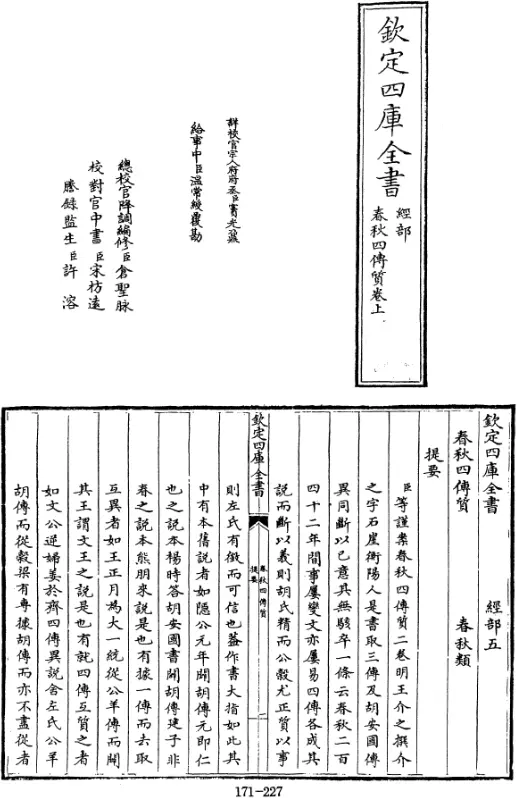 欽定四庫全書
經部
春秋四傳質卷上
詳校官宗人府府丞臣竇光鼐
給事中臣溫常綬覆勘
總校官降調編修臣倉聖脉
校對官中書臣宋枋遠
謄錄監生臣許溶
欽定四庫全書 經部五
春秋四傳質 春秋類
提要
臣等謹案春秋四傳質二卷明王介之撰介
之字石崖衡陽人是書取三傳及胡安國傳
異同斷以已意其無駭卒一條云春秋二百
四十二年間事屢變文亦屢易四傳各成其
説而斷以義則胡氏精而公穀尤正質以事
欽定四庫全書
春秋四傳質
提要
二
則左氏有徵而可信也蓋作書大指如此其
中有本舊説者如隱公元年闢胡傳元即仁
也之説本楊時答胡安國書闢胡傳建子非
春之説本熊朋來説是也有據一傳而去取
互異者如王正月為大一統從公羊傳而闢
其王謂文王之説是也有就四傳互質之者
如文公逆婦姜於齊四傳異説舍左氏公羊
胡傳而從穀梁有專據胡傳而亦不盡從者
171-227